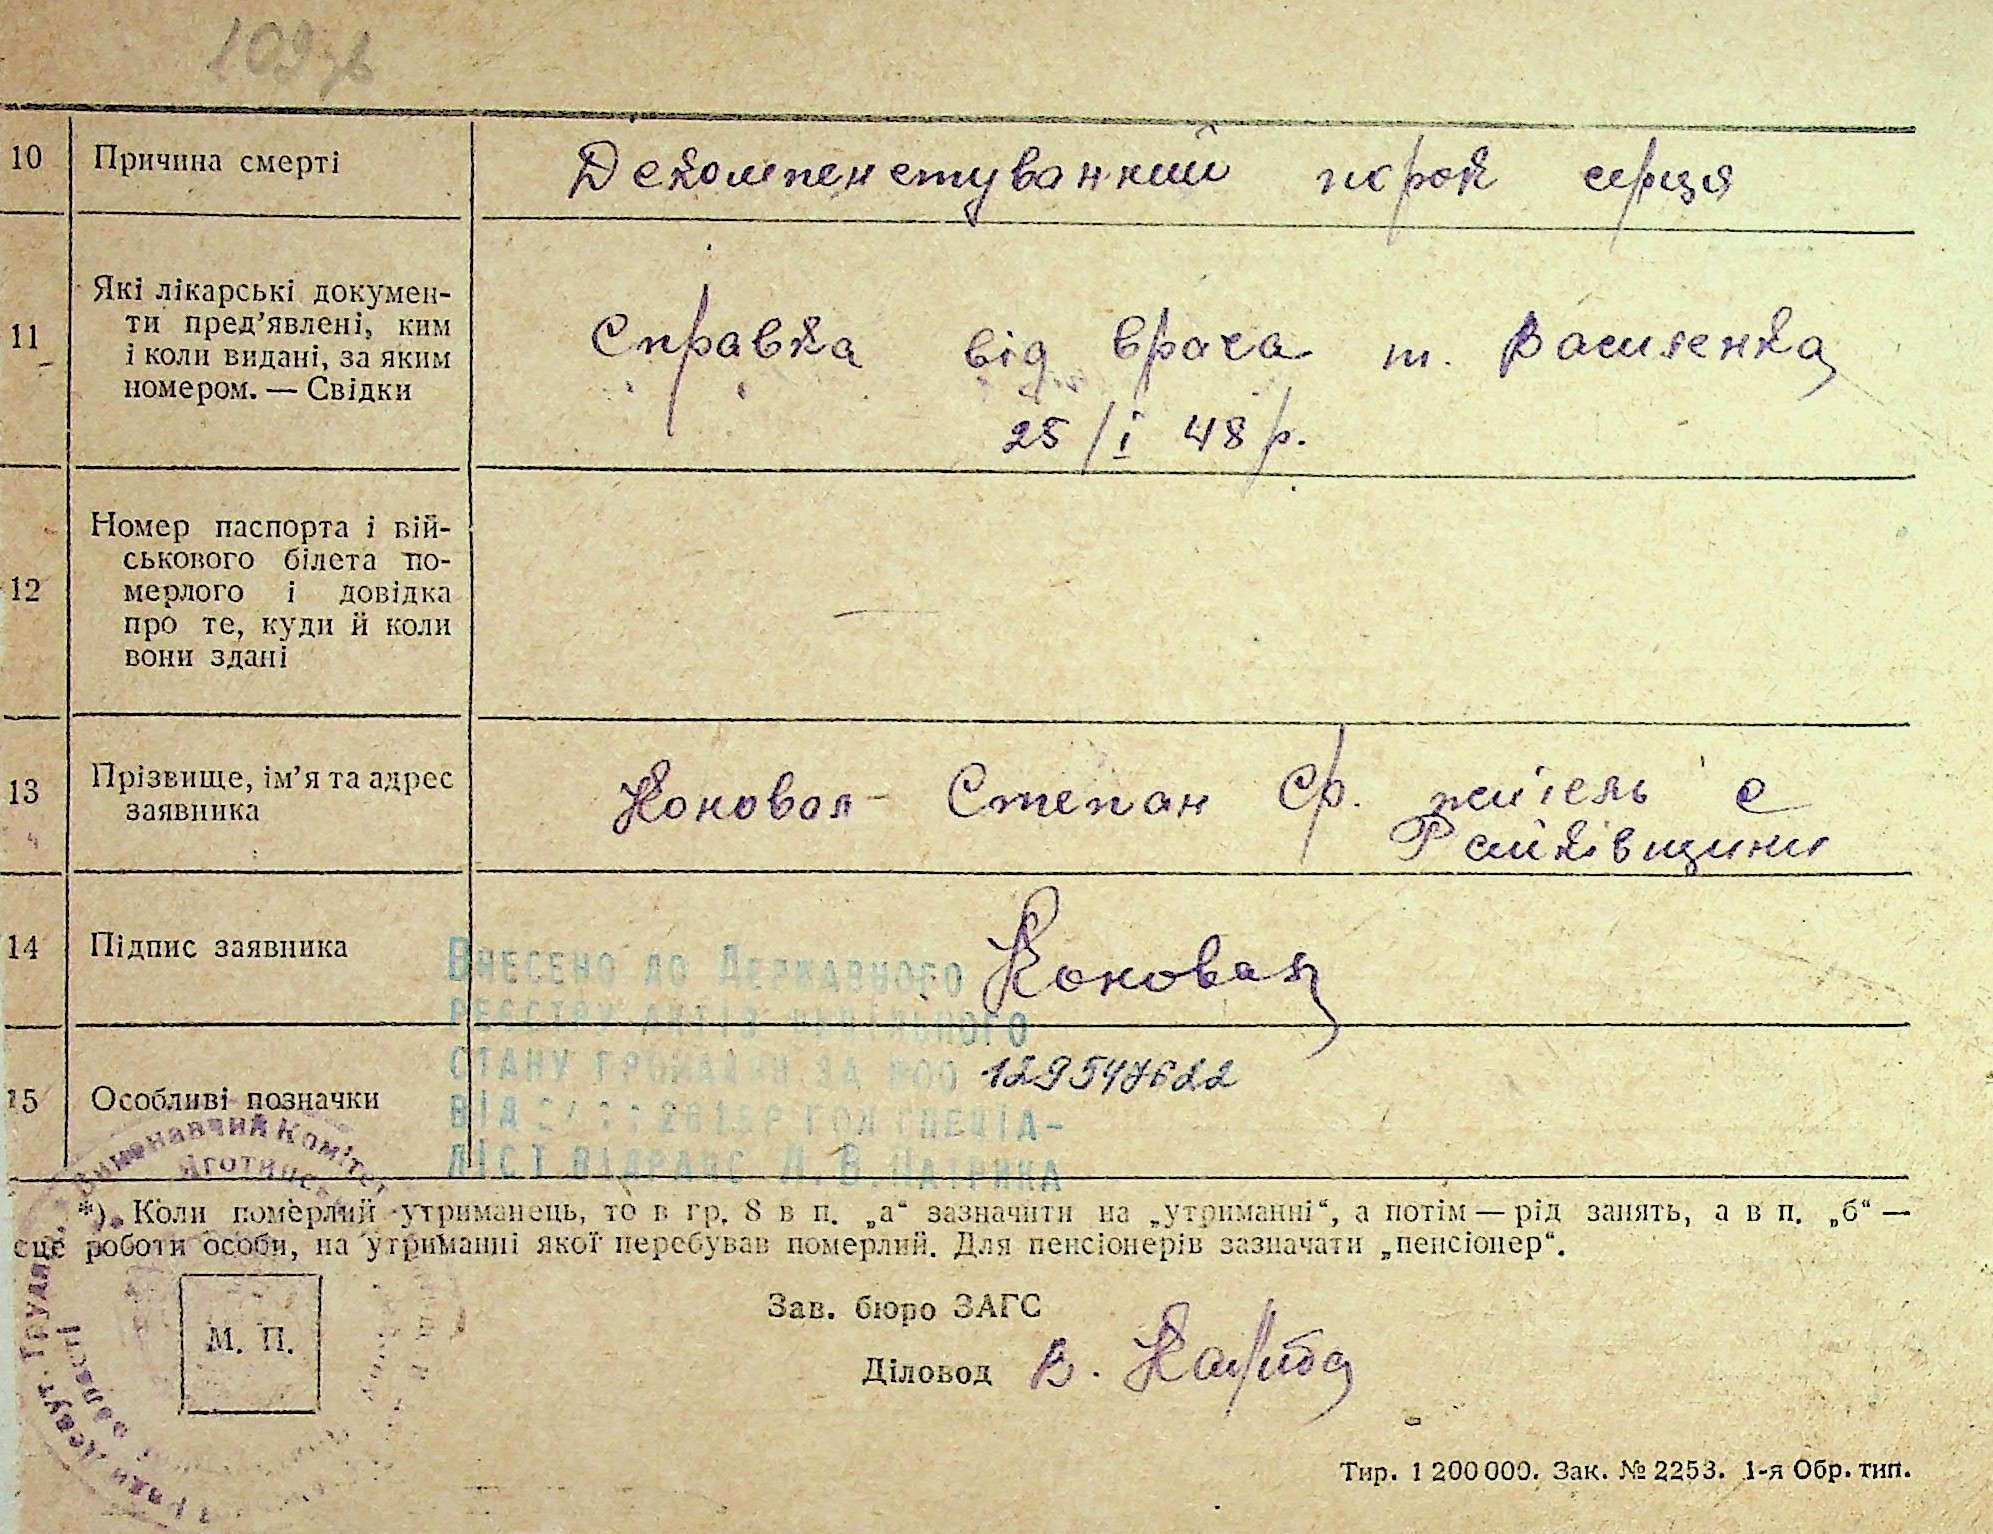 109зв
10 Причина смерті Декомпенстуванний порок серця
11 Які лікарські докумен-
ти пред’явлені, ким
і коли видані, за яким
номером. — Свідки
Справка від врача т. Василенка
25/І 48 р.
12 Номер паспорта і вій-
ськового білета по-
мерлого і довідка
про те, куди й коли
вони здані
—
13 Прізвище, ім’я та адрес
заявника
Коновал Степан Ср. житель с
Райківщини
14 Підпис заявника Коновал
15 Особливі позначки
Внесено до Державного
реєстру актів цивільного
стану громадян за №00 129547622
від
ліст відрацс Л. В. Патрика
Виконавчий Комітет
Яготинс
*). Коли померлий утриманець, то в гр. 8 в п. „а“ зазначити на „утриманні“, а потім — рід занять, а в п. „б“ —
сце роботи особи, на утриманні якої перебував померлий. Для пенсіонерів зазначати „пенсіонер“.
М. П.
Зав. бюро ЗАГС
Діловод В.
Тир. 1 200 000. Зак. № 2253. 1-я Обр. тип.